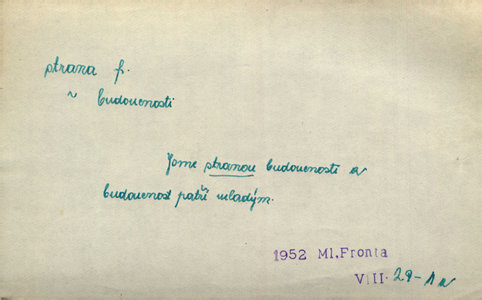 strana f.
~ budoucnosti
Jsme stranou budoucnosti a
budoucnost patří mladým.
1952 Ml.Fronta
VIII. 29-1a